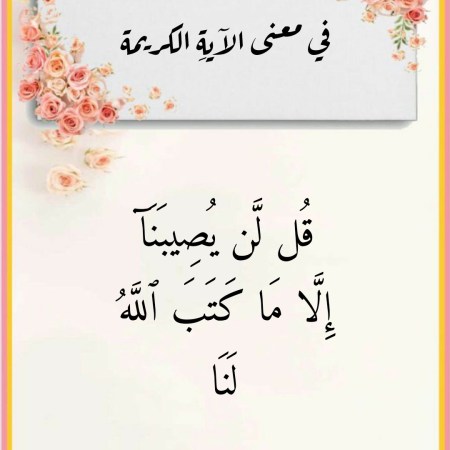 في معنى الآيةِ الكريمة
قُل لَّن يُصِيبَنَآ
إِلَّا مَا كَتَبَ ٱللَّهُ
لَنَا